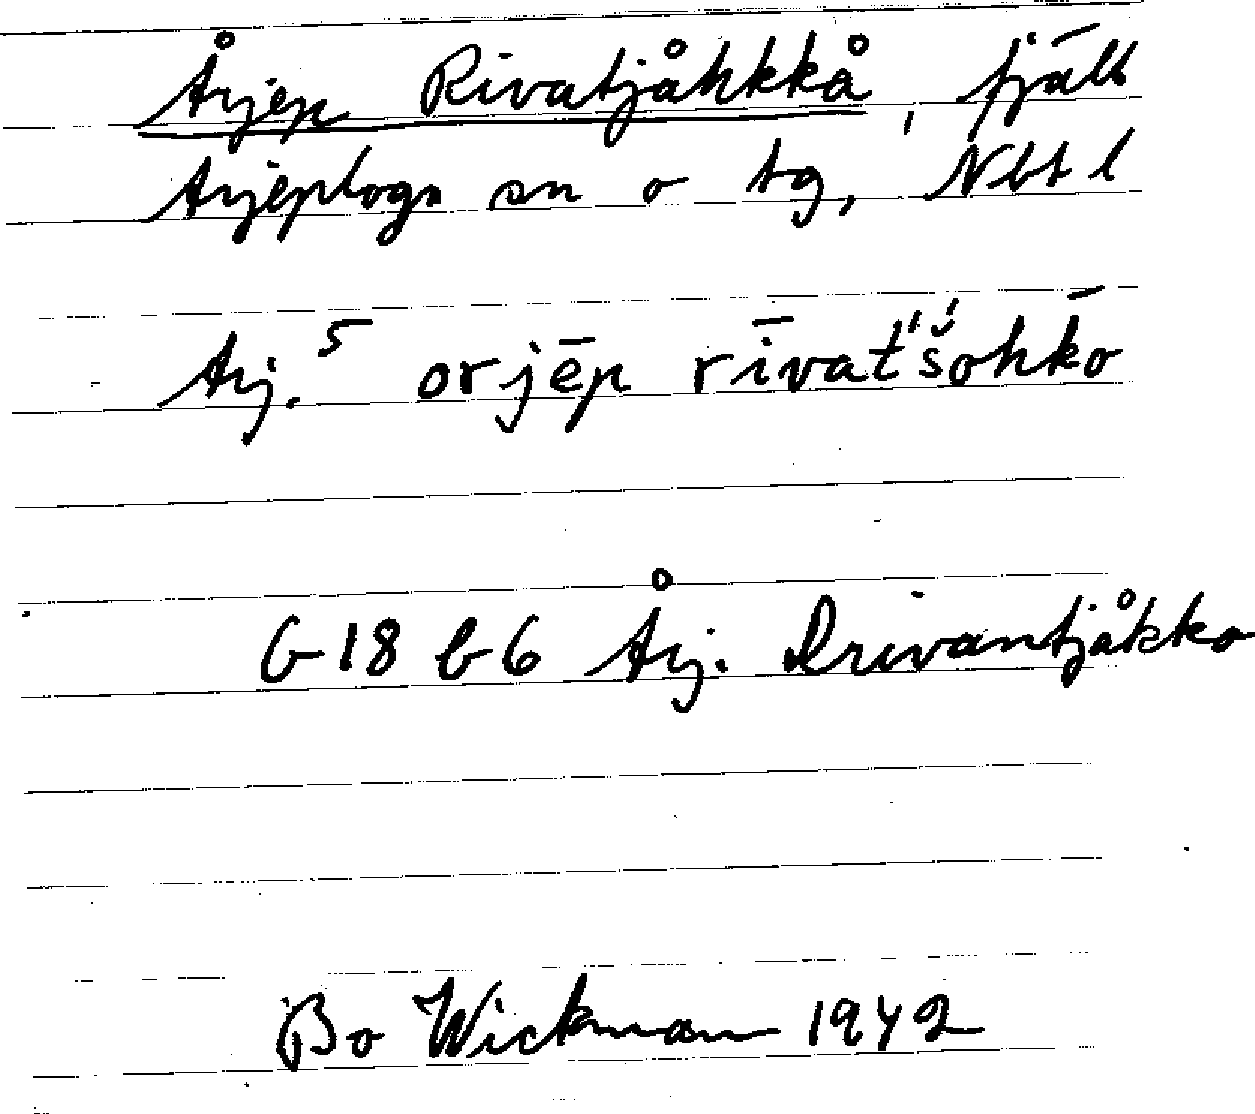 Årjep Rivatjåhkkå, fjäll
Arjeplogs sn o tg, Nbt l
Arj.⁵ orjēp rīvatʹšʹohkō
G 18 b 6 Årj. Drivantjåkko
Bo Wickman 1942